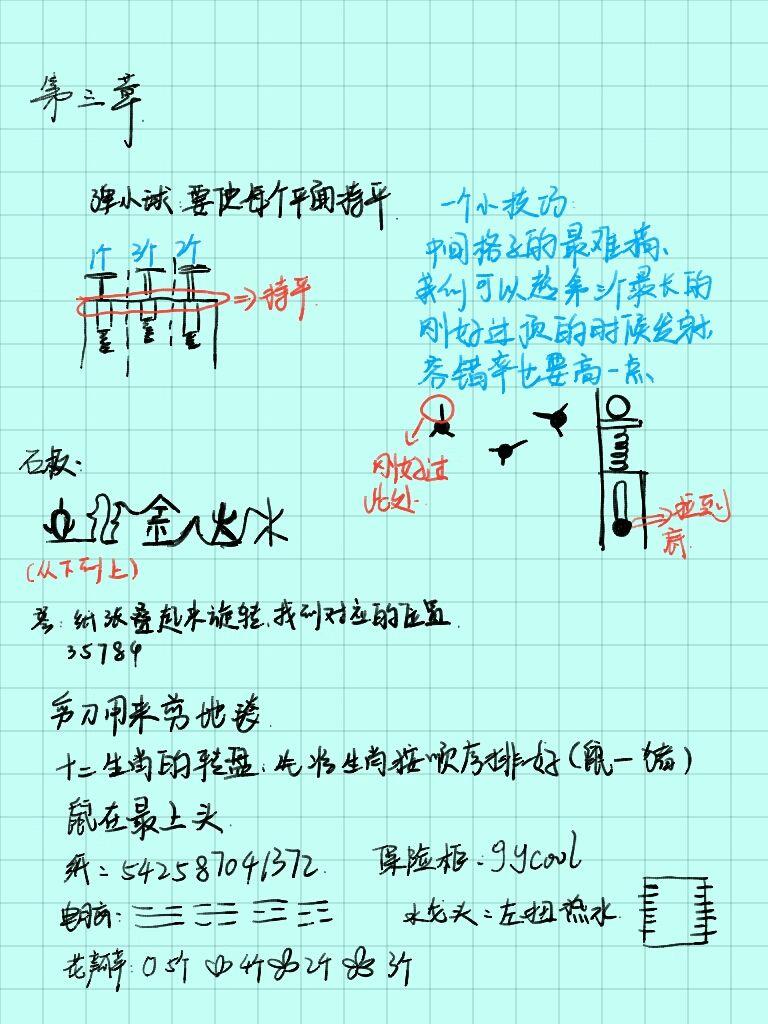 第三章
弹小球:要使每个平面持平.
1个 3个 2个
⇒持平
一个小技巧:
中间格子的最难搞、
我们可以趁第三个最长的
刚好过顶的时候发射,
容错率也要高一点、
刚好过
此处.
⇒拉到
底
石板:
金 火 水
(从下到上)
答:纸张叠起来旋转,找到对应的位置.
35784
剪刀用来剪地毯.
十二生肖的转盘:先将生肖按顺序排好(鼠一猪)
鼠在最上头
纸:542587041372.
保险柜:9ycool
电脑:
水龙头:左扭热水.
花瓣: 5个 4个 2个 3个